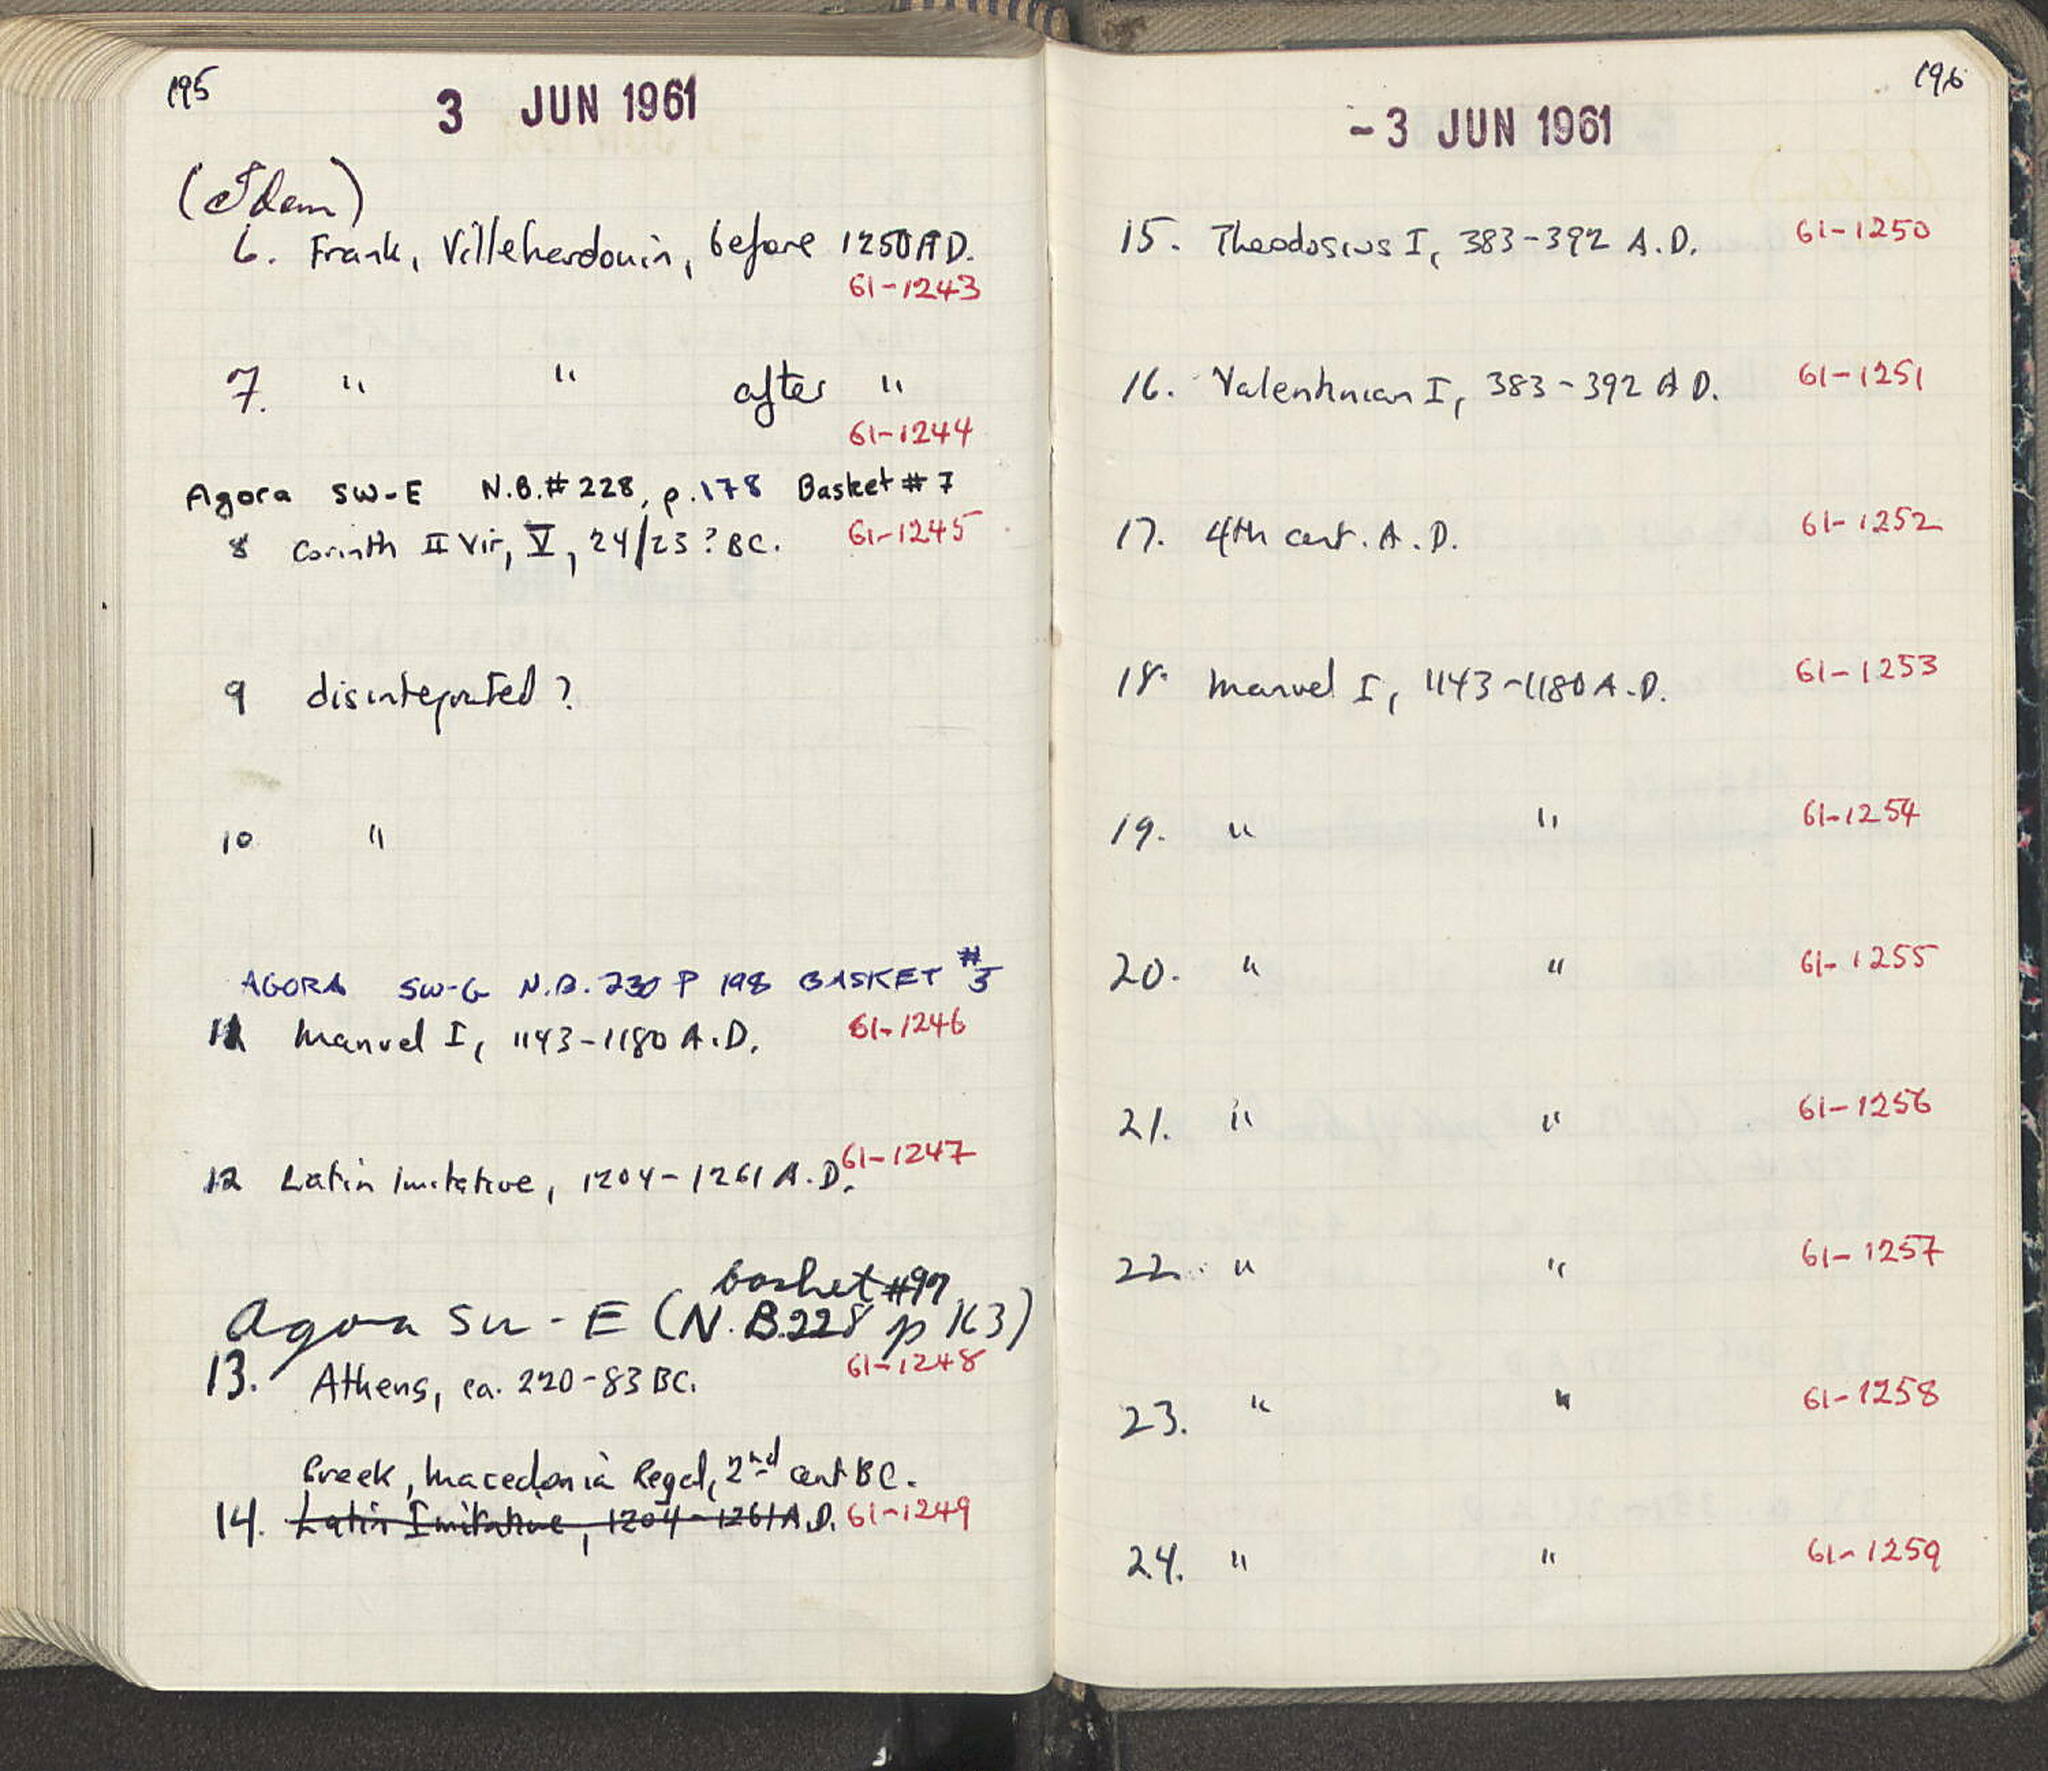 195
3 JUN 1961
(Idem)
6. Frank, Villehardouin, before 1250 A.D.
61-1243
7. " " after "
61-1244
Agora SW-E N.B.# 228, p.178 Basket # 7
8 Corinth II Vir, V, 24/23? BC. 61-1245
9 disintegrated?
10 "
AGORA SW-G N.B. 230 P 198 BASKET #5
11 Manuel I, 1143-1180 A.D. 61-1246
12 Latin Imitative, 1204-1261 A.D. 61-1247
basket #97
Agora SW-E (N.B.228 p 163)
13. Athens, ca. 220-83 BC. 61-1248
Greek, Macedonia Regal, 2nd cent BC.
14. Latin Imitative, 1204-1261 A.D. 61-1249
196
-3 JUN 1961
15. Theodosius I, 383-392 A.D. 61-1250
16. Valentinian I, 383-392 A.D. 61-1251
17. 4th cent. A.D. 61-1252
18. Manuel I, 1143-1180 A.D. 61-1253
19. " " 61-1254
20. " " 61-1255
21. " " 61-1256
22. " " 61-1257
23. " " 61-1258
24. " " 61-1259